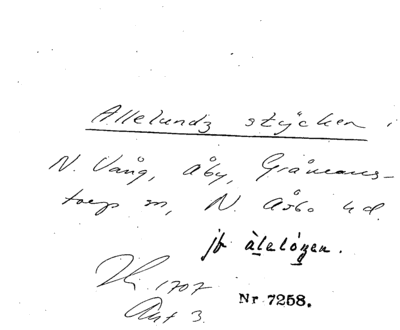 Allelundz stycken i
N. Vång, Åby, Gråmans-
torp sn, N. Åsbo hd.
jfr àlelógen.
1707
Akt 3.
Nr 7258.